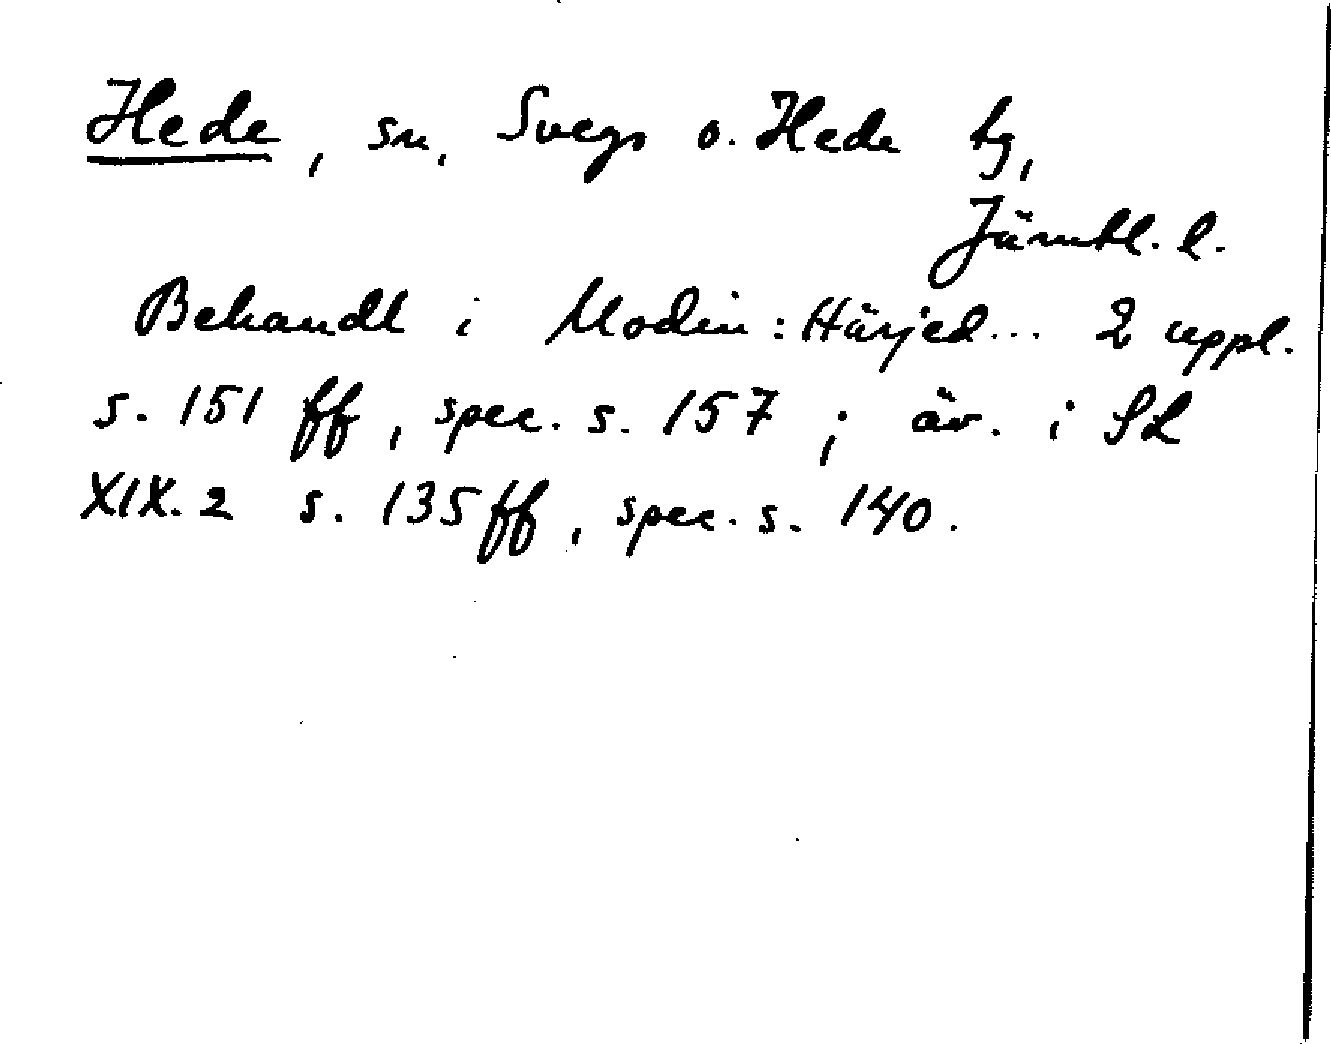 Hede, sn, Svegs o. Hede tg,
Jämtl. l.
Behandl i Modin: Härjed... 2 uppl.
s. 151 ff, spec. s. 157; äv. i SL
XIX.2 s. 135 ff, spec. s. 140.